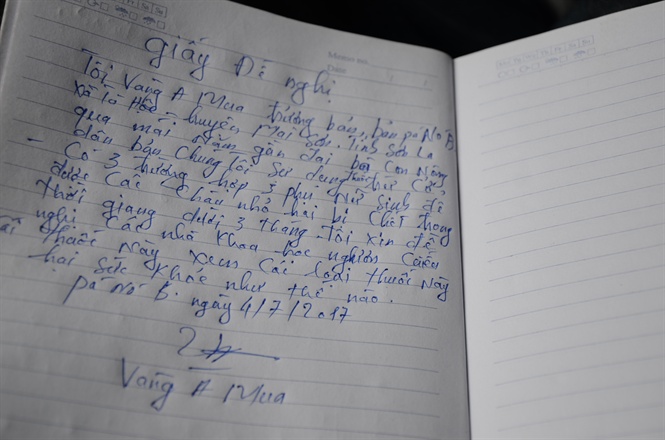 giấy Đề nghị
Memo no.
Date / /
Tôi Vàng A Mua trưởng bản, bản pá Nó B
xã tà Hộc - huyện Mai Sơn. Tỉnh Sơn La
qua mấy Năm gần đây bà con Nông
dân bản chúng Tôi sử dụng thuốc trừ cỏ.
- Có 3 trường hợp 3 phụ Nữ Sinh đẻ
được các cháu nhỏ hay bị chết trong
thời giang dưới 3 tháng Tôi xin đề
nghị Các nhà khoa học nghiên cứu
thuốc này xem các loại thuốc này
hại sức khỏe như thế nào.
pá Nó B. ngày 4/7/2017
Vàng A Mua